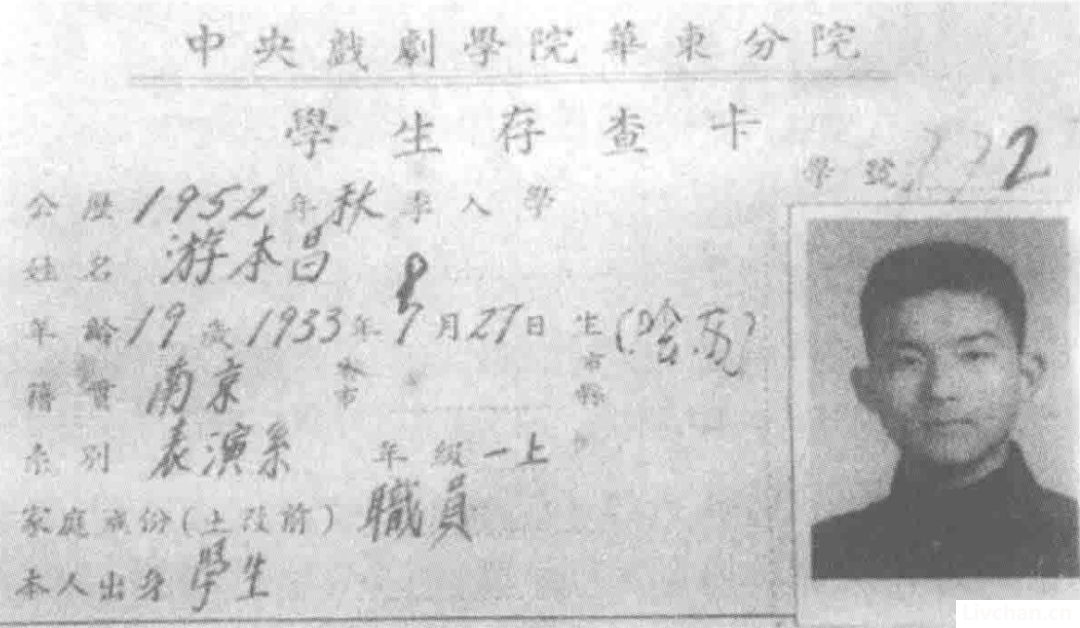 中央戲劇學院華東分院
學生存查卡
學號 2
公歷1952年秋季入學
姓名 游本昌
年齡19歲1933年8月27日生
籍貫 南京 市 縣
系別 表演系 年級一上
家庭成份(土改前) 職員
本人出身 學生
Livchan.cn